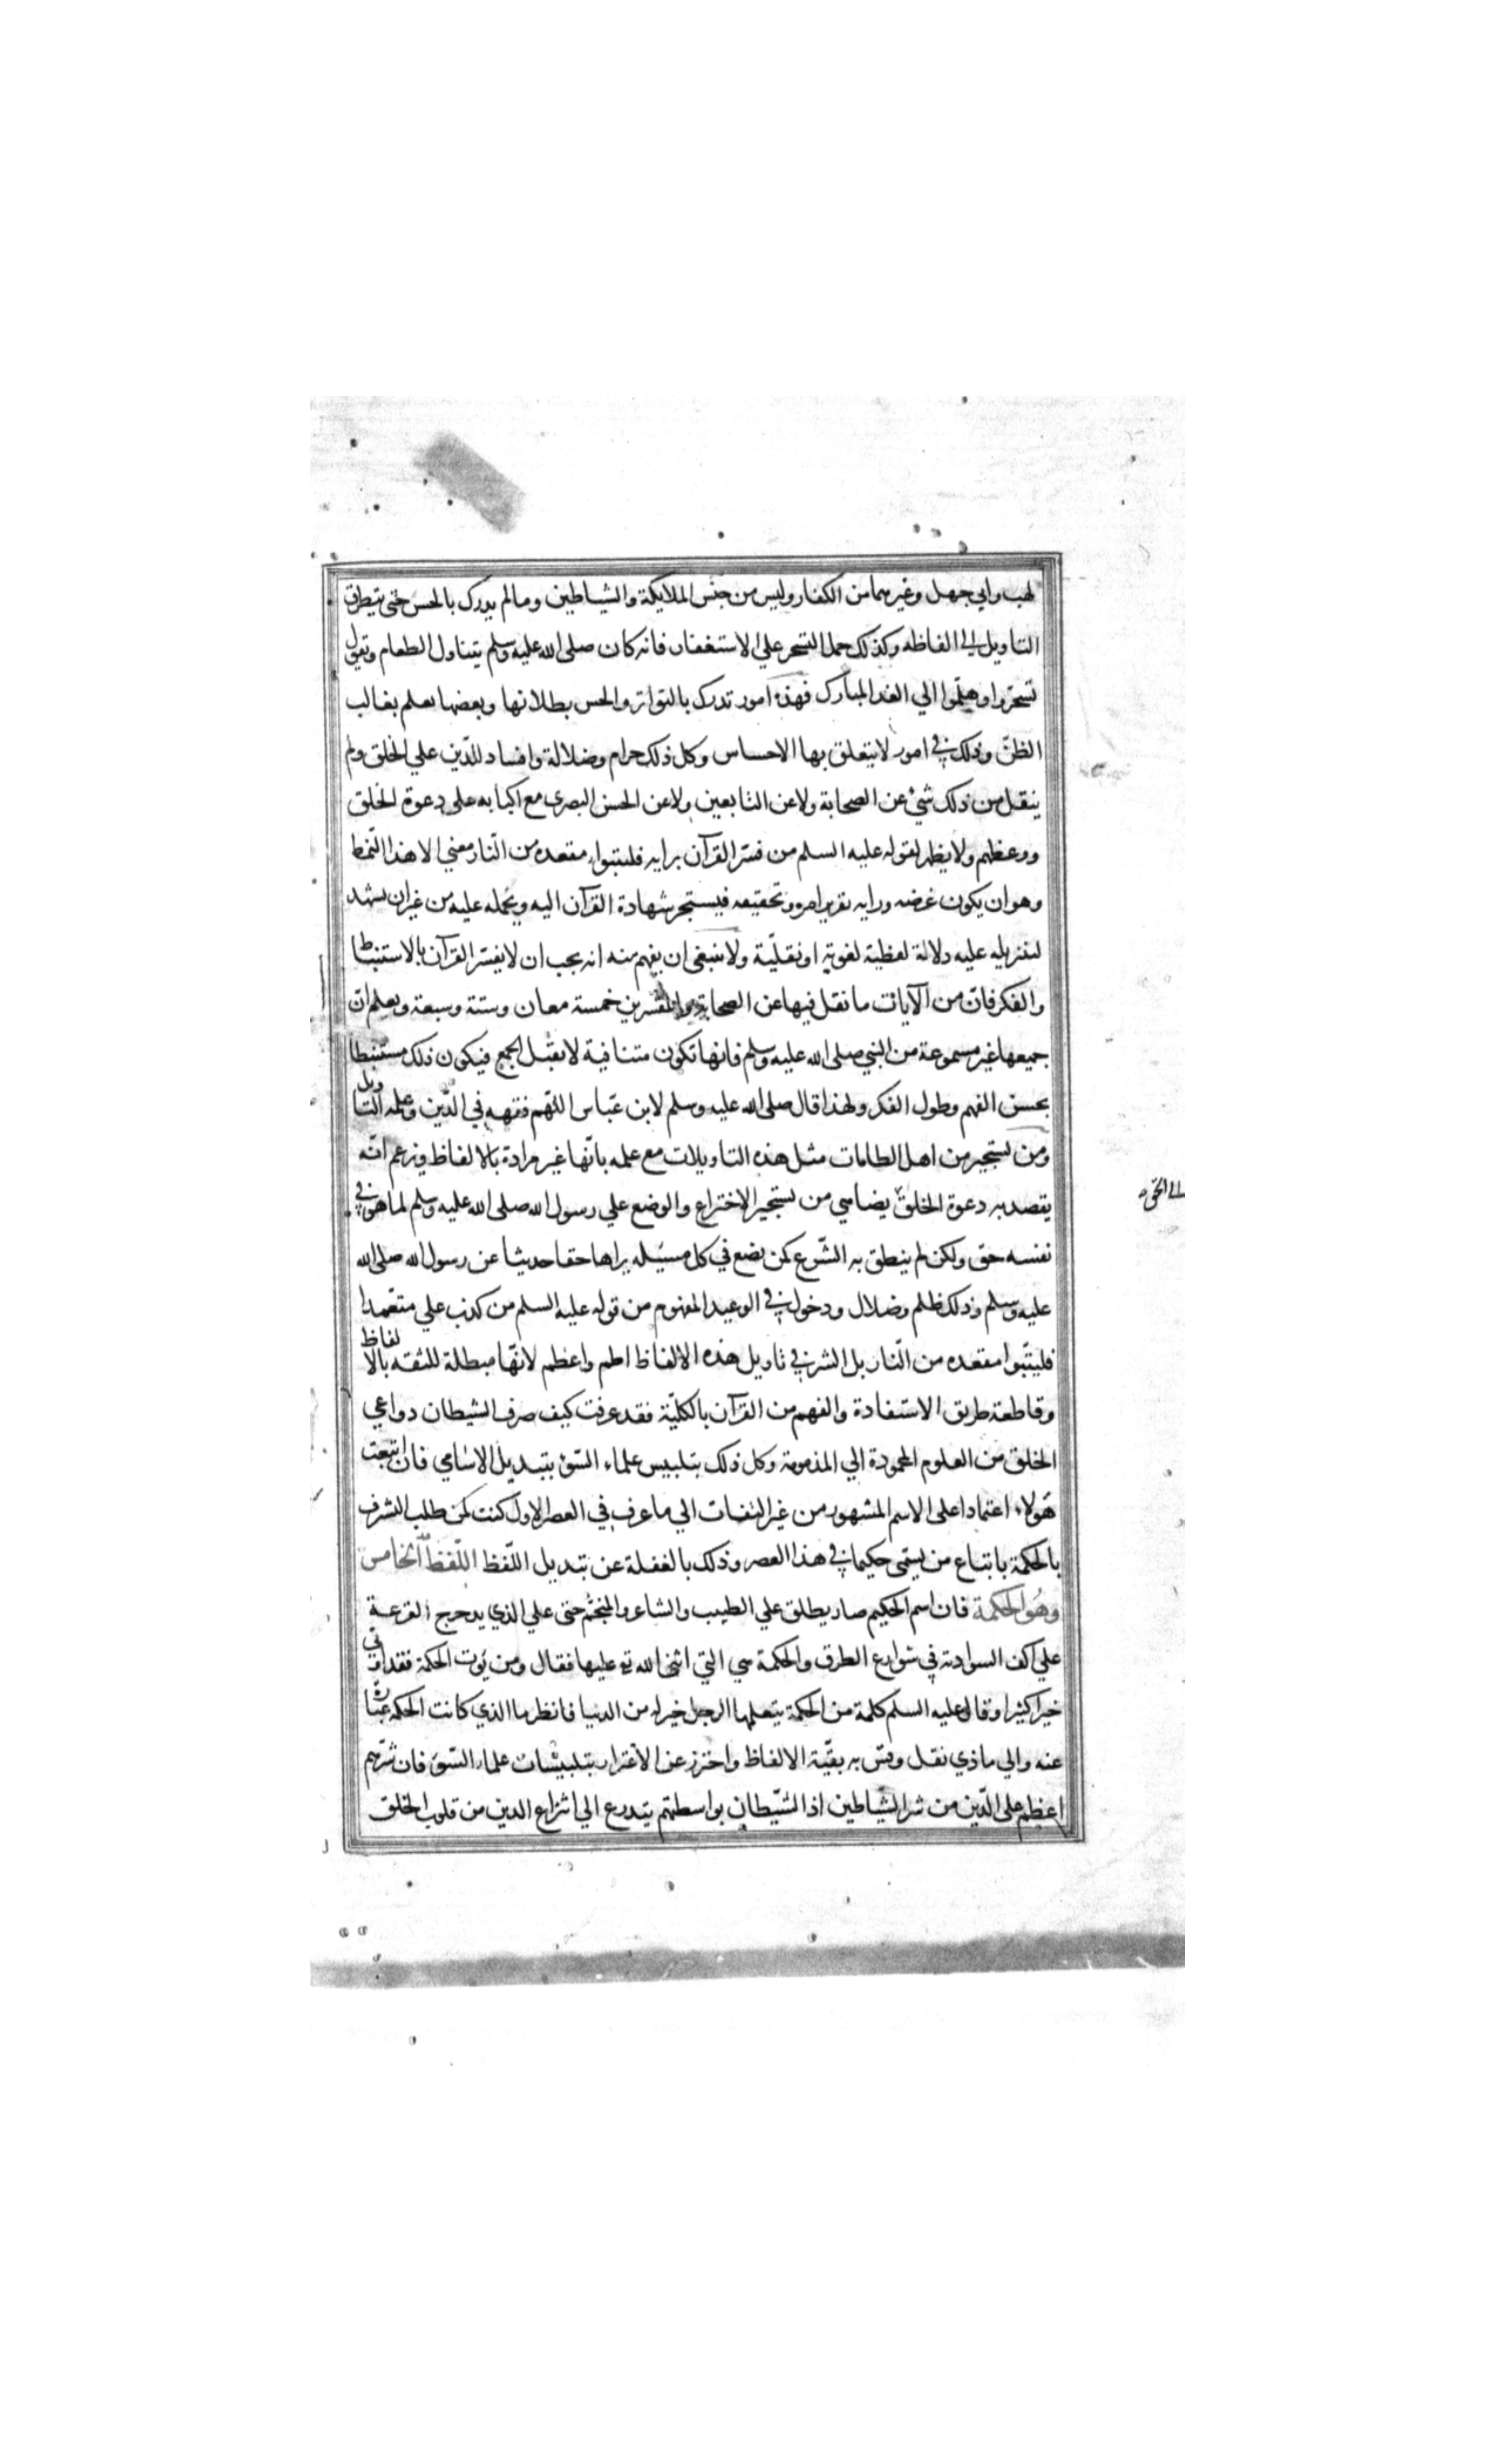 لهب وابي جهل وغيرهما من الكفار وليس من جنس الملايكة والشياطين ومالم يدرك بالحس حتى يتطرق
التاويل الى الفاظه وكذلك حمل التسحر علي الاستغفار فانه كان صلى الله عليه وسلم يتناول الطعام ويقول
تسحروا وهلموا الي الغدا المبارك فهذه امور تدرك بالتواتر والحس بطلانها وبعضها يعلم بغالب
الظن وذلك في امور لا يتعلق بها الاحساس وكل ذلك حرام وضلالة وافساد للدين علي الخلق ولم
ينقل من ذلك شئ عن الصحابة ولا عن التابعين ولا عن الحسن البصرى مع اكبابه على دعوة الخلق
ووعظهم ولا يظهر لقوله عليه السلم من فسر القرآن برايه فليتبواء مقعده من النار معني الا هذا النمط
وهو ان يكون غرضه ورايه تقرير امر وتحقيقه فيستجر شهادة القرآن اليه ويحمله عليه من غير ان يشهد
لتنزيله عليه دلالة لفظية لغوية او نقلية ولا ينبغى ان يفهم منه انه يجب ان لا يفسر القرآن بالاستنباط
والفكر فان من الآيات ما نقل فيها عن الصحابة والمفسرين خمسة معان وستة وسبعة ويعلم ان
جميعها غير مسموعة من النبي صلى الله عليه وسلم فانها تكون متنافية لا يقبل الجمع فيكون ذلك مستنبطا
بحسن الفهم وطول الفكر ولهذا قال صلى الله عليه وسلم لابن عباس اللهم فقهه في الدين وعلمه التاويل
ومن يستجير من اهل الطامات مثل هذه التاويلات مع علمه بانها غير مرادة بالالفاظ ويزعم انه
يقصد به دعوة الخلق يضاهي من يستجير الاختراع والوضع علي رسول الله صلى الله عليه وسلم لما هو في
الى الحق
نفسه حق ولكن لم ينطق به الشرع كمن يضع في كل مسئله يراها حقا حديثا عن رسول الله صلى الله
عليه وسلم وذلك ظلم وضلال ودخول في الوعيد المفهوم من قوله عليه السلم من كذب علي متعمدا
فليتبوا مقعده من النار بل الشر في تاويل هذه الالفاظ اطم واعظم لانها مبطلة للثقه بالالفاظ
وقاطعة طريق الاستفادة والفهم من القرآن بالكلية فقد عرفت كيف صرف الشيطان دواعي
الخلق من العلوم المحمودة الي المذمومة وكل ذلك بتلبيس علماء السوء بتبديل الاسامي فان اتبعت
هولاء اعتمادا على الاسم المشهور من غير التفات الي ما عرف في العصر الاول كنت كمن طلب الشرف
بالحكمة باتباع من يسمى حكيما في هذا العصر وذلك بالغفلة عن تبديل اللفظ اللفظ الخامس
وهو الحكمة فان اسم الحكيم صار يطلق علي الطبيب والشاعر والمنجم حتى علي الذي يدحرج القرعة
علي اكف السوادية في شوارع الطرق والحكمة هي التي اثنى الله تع عليها فقال ومن يوت الحكمة فقد اوتي
خيرا كثيرا وقال عليه السلم كلمة من الحكمة يتعلمها الرجل خير له من الدنيا فانظر ما الذي كانت الحكمة عبارة
عنه والي ماذي نقل وقس به بقية الالفاظ واحترز عن الاغترار بتلبيسات علماء السوء فان شرهم
اعظم على الدين من شر الشياطين اذ الشيطان بواسطتهم يتدرع الي انتزاع الدين من قلوب الخلق